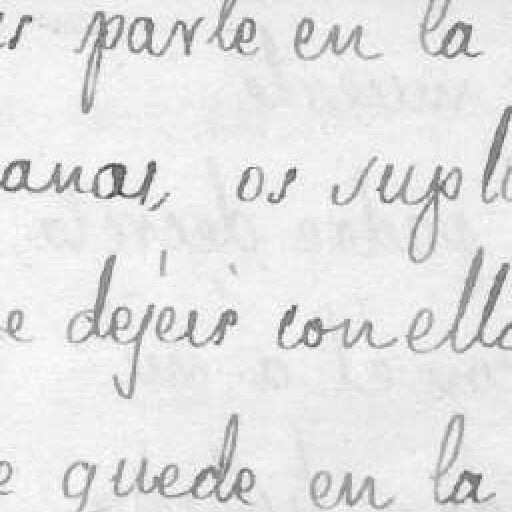 parte en la
anas, os supli
e dejéis con ella
e quede en la